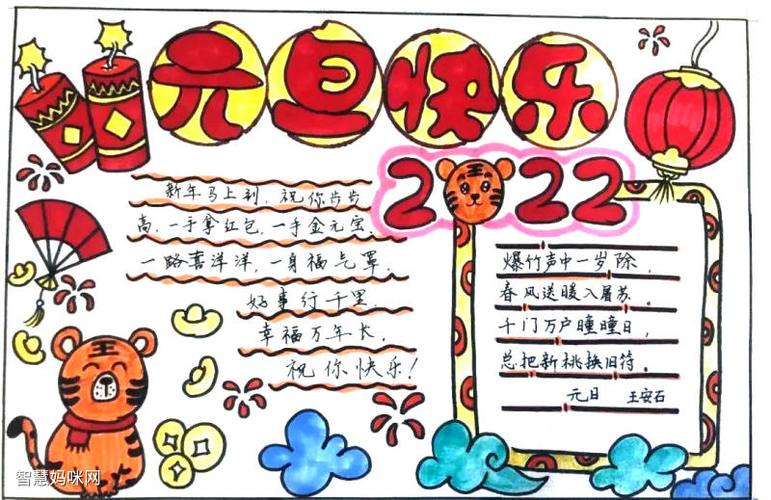 元旦快乐
2022
新年马上到,祝你步步
高,一手拿红包,一手金元宝,
一路喜洋洋,一身福气罩,
好事行千里,
幸福万年长,
祝你快乐!
爆竹声中一岁除,
春风送暖入屠苏。
千门万户曈曈日,
总把新桃换旧符。
元日 王安石
王
智慧妈咪网